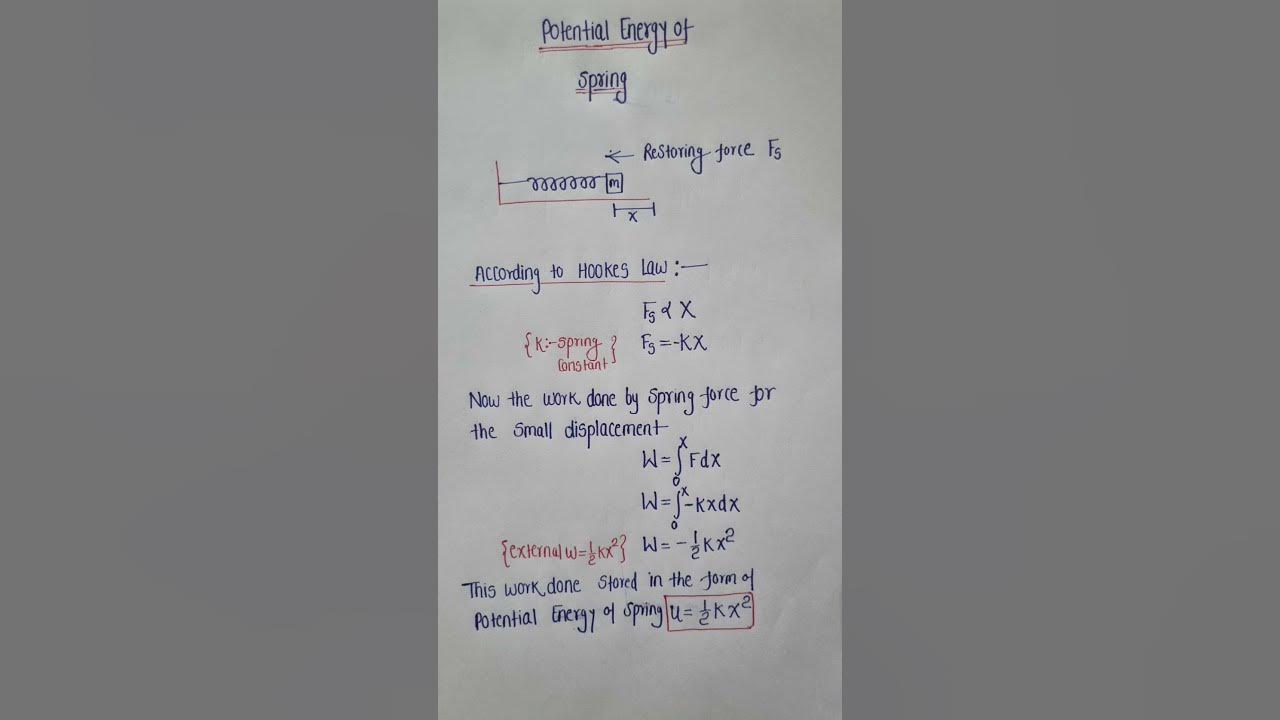 Potential Energy of
Spring
← Restoring force Fs
m
x
According to HOOKES Law :—
Fs ∝ X
{K:-spring constant} Fs = -KX
Now the work done by spring force for
the small displacement
W = ∫₀ˣ Fdx
W = ∫₀ˣ -Kxdx
{external W = ½Kx²} W = -½Kx²
This work done stored in the form of
Potential Energy of Spring U = ½Kx²